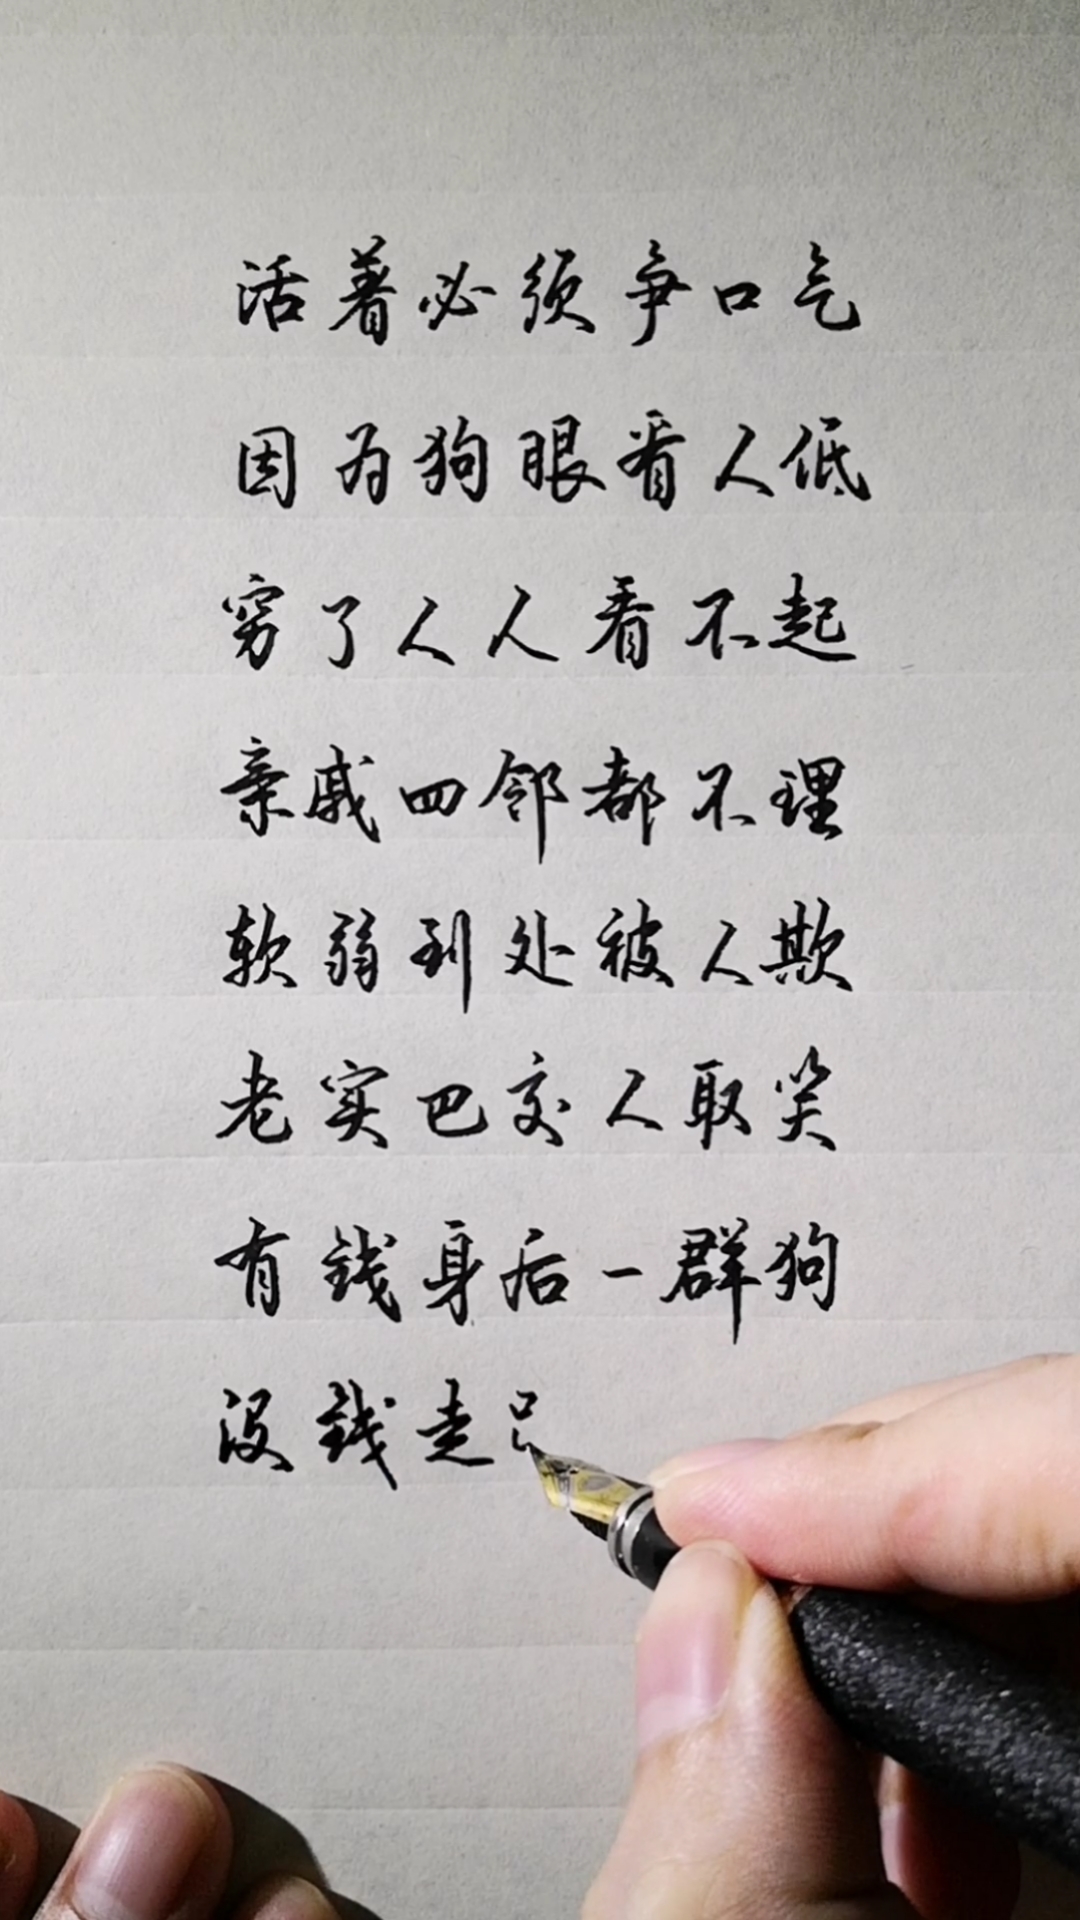 活着必须争口气
因为狗眼看人低
穷了人人看不起
亲戚四邻都不理
软弱到处被人欺
老实巴交人取笑
有钱身后一群狗
没钱走